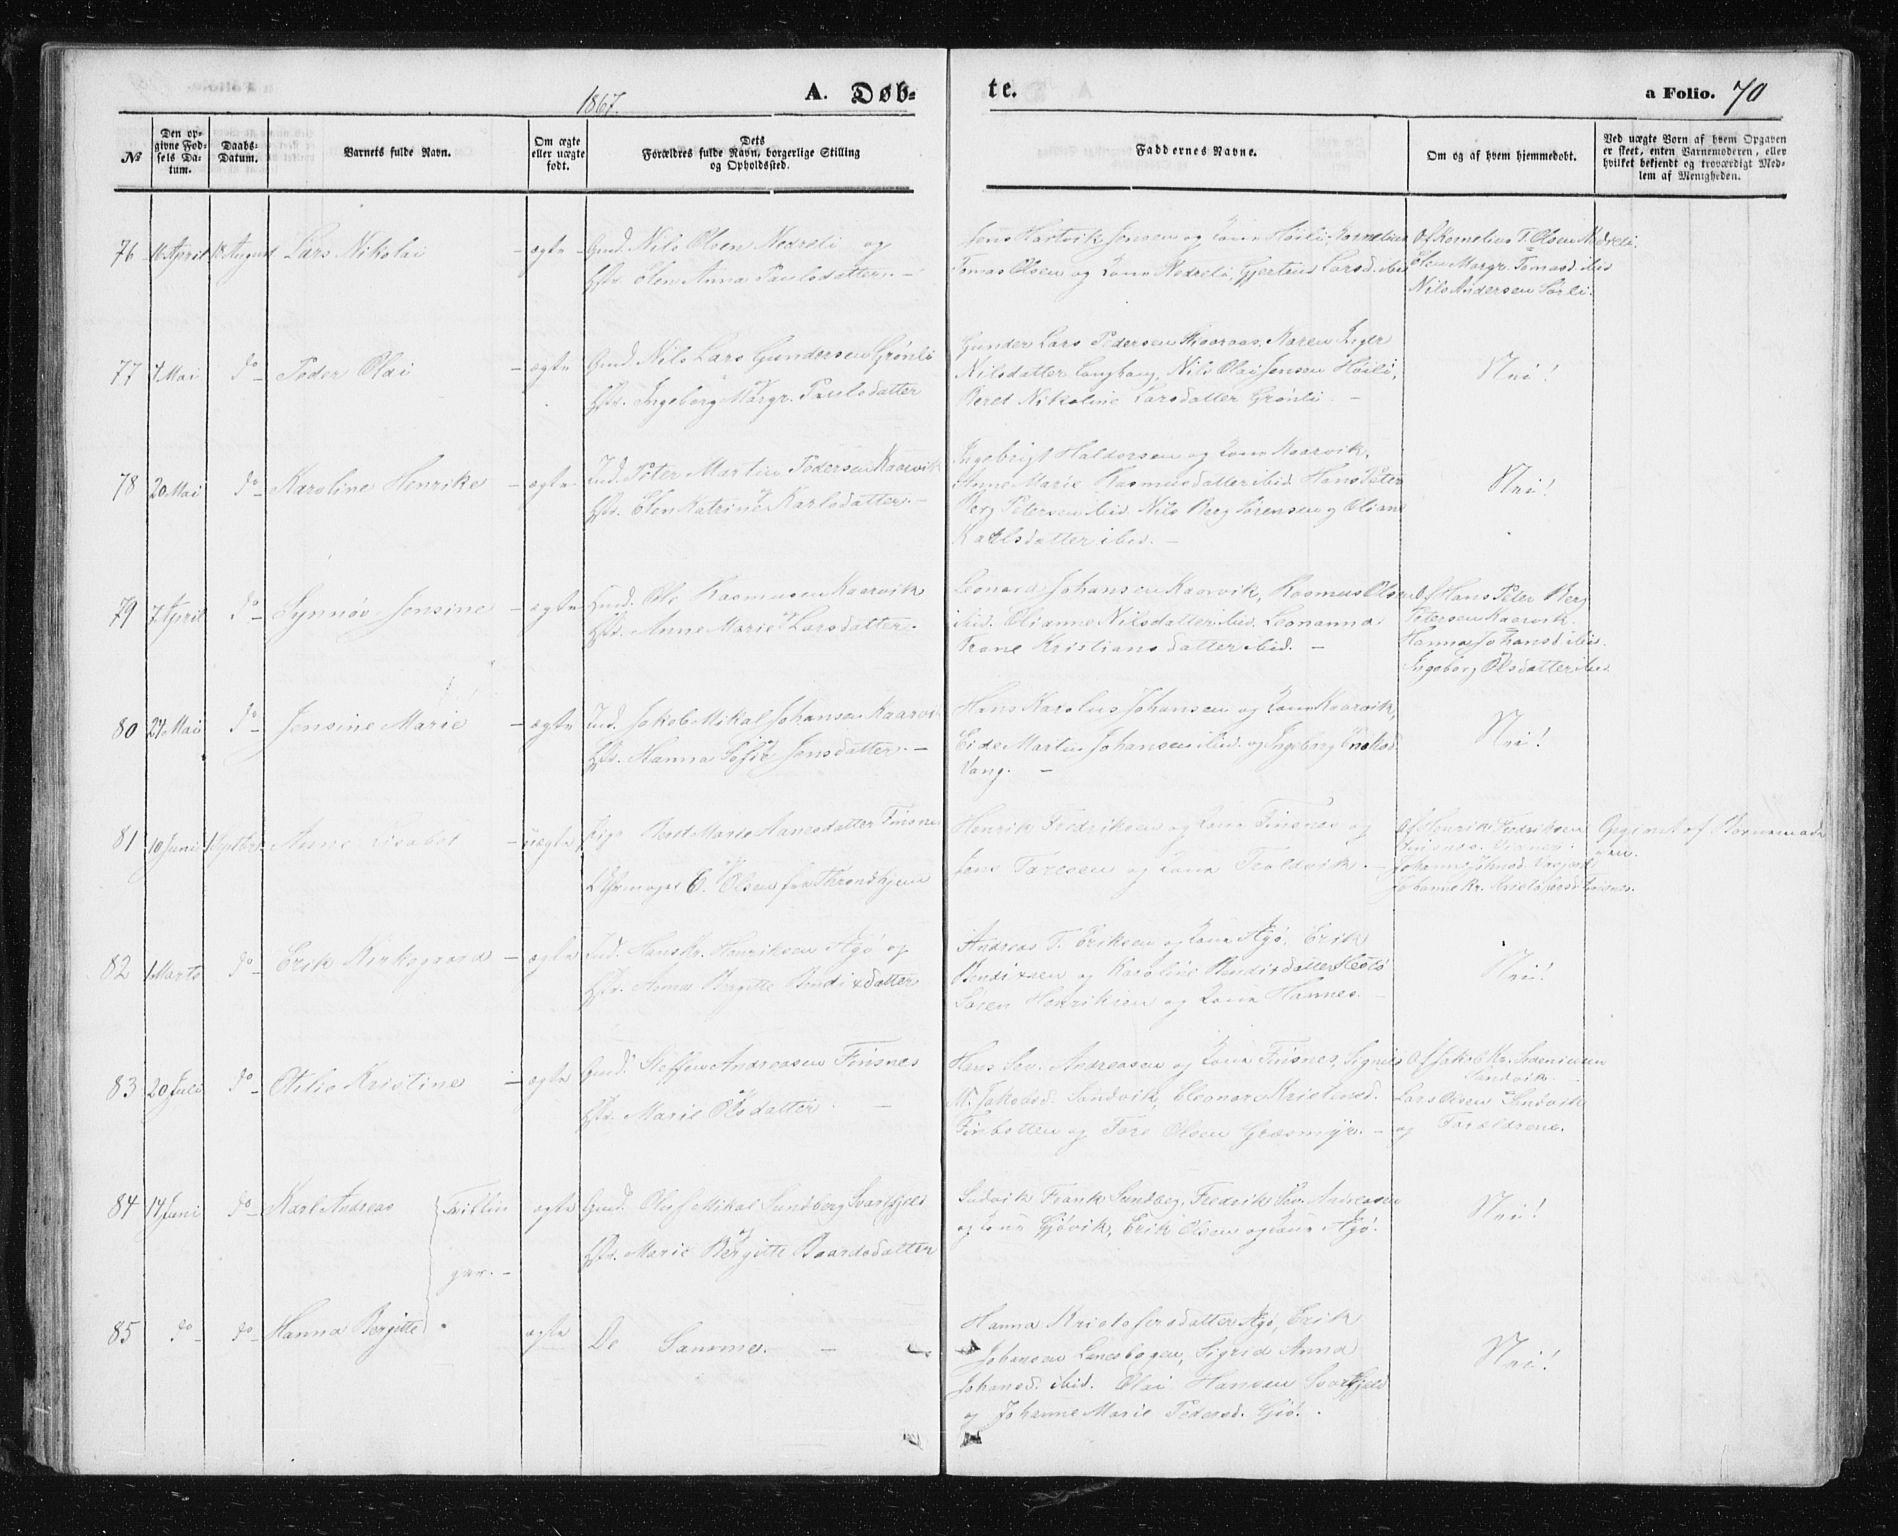 1867.
A. Døb-
te.
a Folio. 70
№
Den op-
givne Fød-
sels Da-
tum.
Daabs-
Datum.
Barnets fulde Navn.
Om ægte
eller uægte
født.
Dets
Forældres fulde Navn, borgerlige Stilling
og Opholdssted.
Faddernes Navne.
Om og af hvem hjemmedøbt.
Ved uægte Børn af hvem Opgaven
er skeet, enten Barnemoderen, eller
hvilket bekjendt og troværdigt Med-
lem af Menigheden.
76 16 April 18 August Lars Nikolai - ægte - Gmd. Nils Olsen Nedreli og
Hst. Elen Anna Paulsdatter. -
Jens Hartvik Jensen og Kone Høili, Kornelius
Tomas Olsen og Kone Nedreli, Gjertrud Larsd. ibid
Af Kornelius T. Olsen Nedreli,
Elen Margr. Tomasd. ibid
Nils Andersen Sørli.
77 4 Mai do - Peder Olai - ægte - Gmd. Nils Lars Gundersen Grønli
Hst. Ingeborg Margr. Paulsdatter
Gunder Lars Pedersen Kaaraas, Karen
Nilsdatter Langvang, Nils Olai Jensen Høili,
Beret Nikoline Larsdatter Grønli. -
Nei!
78 20 Mai do - Karoline Henrike - ægte - Ind. Peter Martin Pedersen Kaarvik
Hst. Elen Katrine Karlsdatter. -
Ingebrigt Haldorsen og Kone Kaarvik,
Anne Marie Rasmusdatter ibid. Hans Peter
Berg Petersen ibid. Nils Berg Sørensen og Oliane
Karlsdatter ibid. -
Nei!
79 7 April do - Synnøv Jensine - ægte - Ole Rasmusen Kaarvik
Hst. Anne Marie Larsdatter.
Leonard Johansen Kaarvik, Rasmus Olsen
ibid. Olianne Nilsdatter ibid. Leonanna
Trane Kristiansdatter ibid. -
Af Hans Peter Berg
Petersen Kaarvik.
Hanna Johansd. ibid.
Ingeborg Olsdatter ibid
80 24 Mai do - Jensine Marie - ægte Ind. Jakob Mikal Johansen Kaarvik
Hst. Hanna Sofie Jensdatter. -
Hans Karolus Johansen og Kone Kaarvik,
Eide Martin Johansen ibid. og Ingeborg
Vang. -
Nei!
81 10 Juni 1 Septbr. Anne Lisabet - uægte Pige Beret Marie Aanesdatter Finsnes
Olsen fra Throndhjem
Henrik Fredriksen og Kone Finsnes og
Jens Taresen og Kone Troldvik. -
Af Henrik Fredriksen
Finsnes.
Johanne Kr. Kristofersd. Finsnes.
Opgivet af Barnemode-
ren.
82 1 Marts do - Erik Kirkegaard - ægte Ind. Hans Kr. Henriksen Agø og
Hst. Anna Bergitte Bendixdatter
Andreas T. Eriksen og Kone Agø, Erik
Bendixsen og Karoline Bendixdatter Hestø
Søren Henriksen og Kone Hannes. -
Nei!
83 20 Juli do - Otilie Kristine - ægte Gmd. Steffen Andreasen Finsnes
Hst. Marie Olsdatter. -
Hans Sev. Andreasen og Kone Finsnes, Signes
M. Jakobsd. Sandvik, Eleonor Kristensd.
Finbotten og Tore Olsen Græsmyr. -
Af Jakob Kr.
Sandvik. -
Lars Olsen Sandvik
og Forældrene.
84 14 Juni do - Karl Andreas Tvillin ægte Gmd. Oluf Mikal Sundberg Svartfjeld
ger. - Hst. Marie Bergitte Baardsdatter
Ludvik Frank Sundbeg, Fredrik Sev. Andreasen
og Kone Gjøvik, Erik Olsen og Kone Agø.
Nei!
85 do - do - Hanna Bergitte ægte De Samme. -
Hanna Kristofersdatter Agø, Erik
Johansen Lanesbogen, Sigrid Anna
Johansd. ibid. Olai Hansen Svartfjeld
og Johanne Marie Pedersd. Gjø.
Nei!